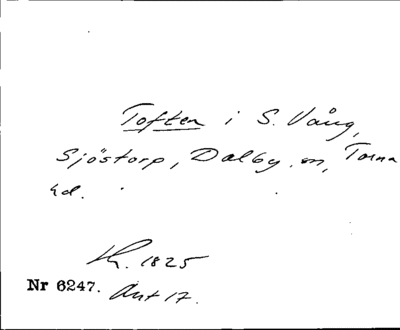 Toften i S. Vång,
Sjöstorp, Dalby sn, Torna
hd.
Lk. 1825
Nr 6247. Akt 17.